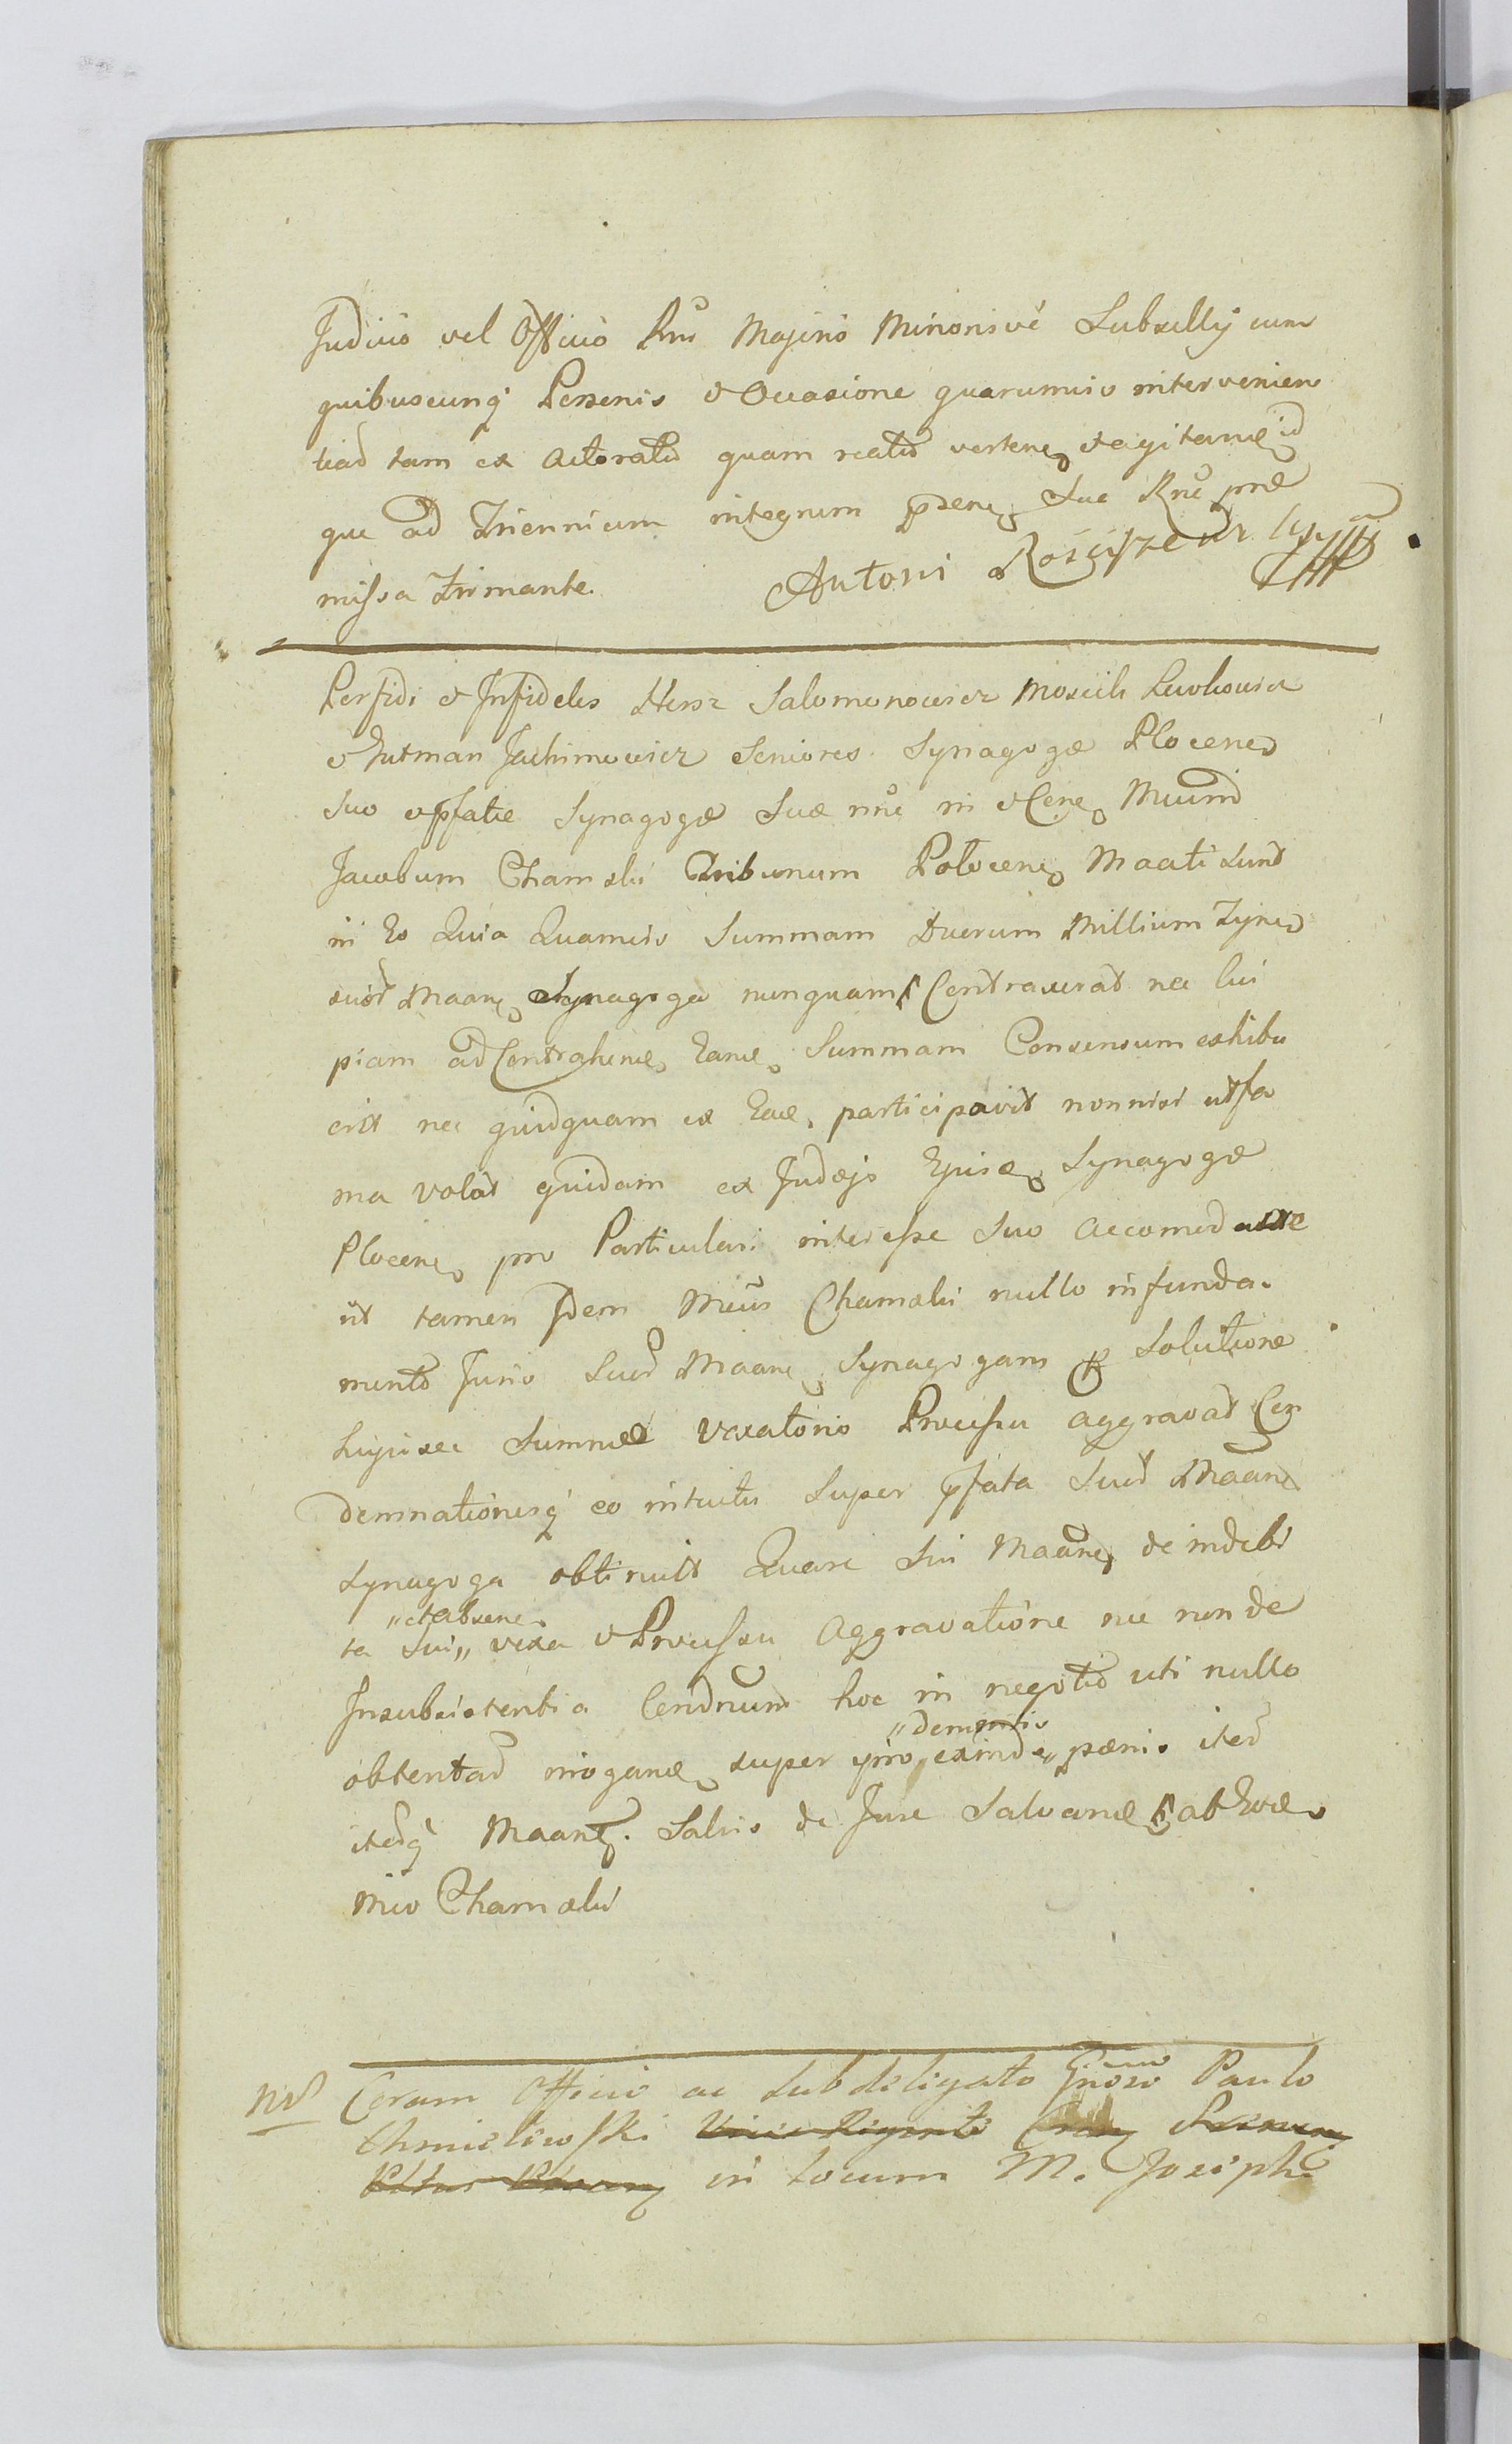 Judicio vel Officio Rni Majoris Minorisvè Subsellij cum
quibuscunq Personis & Occasione quarumvis intervenien
tiad tam ex Actoratu quam reatu verten, & agitan, id
que ad Triennium integrum praesen, Sua Rne prae
missa firmante. Antoni
Perfidi & Infideles Hersz Salomonowicz Moszek
& Gutman Jachimowicz Seniores Synagogæ Plocen,
suo & pfatæ Synagogæ Suæ nñe in & Cene,
Jacobum Chamski Tribunum Plocen, Maati sunt
in Eo Quia Quamvis Summam Duorum Millium Tynf
Maan, Synagoga nunquam Contraxerat nec
piam ad Contrahend, Eand, Summam Consensum exhibu
erit nec quidquam ex Ead, participavit non nisi ut fa
ma volat quidam ex Judæis Ejusd, Synagogæ
Plocen, pro Particulari interesse Suo Accomodasse
ut tamen Idem Mcus Chamski nullo in funda-
mento Juris Suor Maan, Synagogam pro Solutione
hujusce Summæ vexatorio Processu aggravat Con
demnationesq eo intuitu Super pfata Suor Maan
Synagoga obtinuit Quare Sui Maan, de indebi
ta Sui „et absene„ vexa & Processu Aggravatione nec non de
Insubsistentia Condnum hoc in negotio uti nullo
obtentar irrogand, super ipso, exinde „demeritis„ pænis iteq
iteq Maand. Salvis de Jure Salvand, ab Eod,
Mco Chamski
NB Coram Officio ac Subdeligato Gnoso Paulo
Chmielewski Vice Regenti
in locum M. Josephi